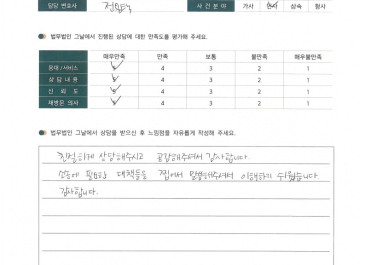 담당 변호사 사건분야 가사 민사 상속 형사
법무법인 그날에서 진행된 상담에 대한 만족도를 평가해 주세요.
매우만족 만족 보통 불만족 매우불만족
응대/서비스 5 4 3 2 1
상담 내용 5 4 3 2 1
신뢰도 5 4 3 2 1
재방문 의사 5 4 3 2 1
법무법인 그날에서 상담을 받으신 후 느낌점을 자유롭게 작성해 주세요.
친절하게 상담해주시고 공감해주셔서 감사합니다.
소송에 필요한 대책들을 집어서 말씀해주셔서 이해하기 쉬웠습니다
감사합니다.